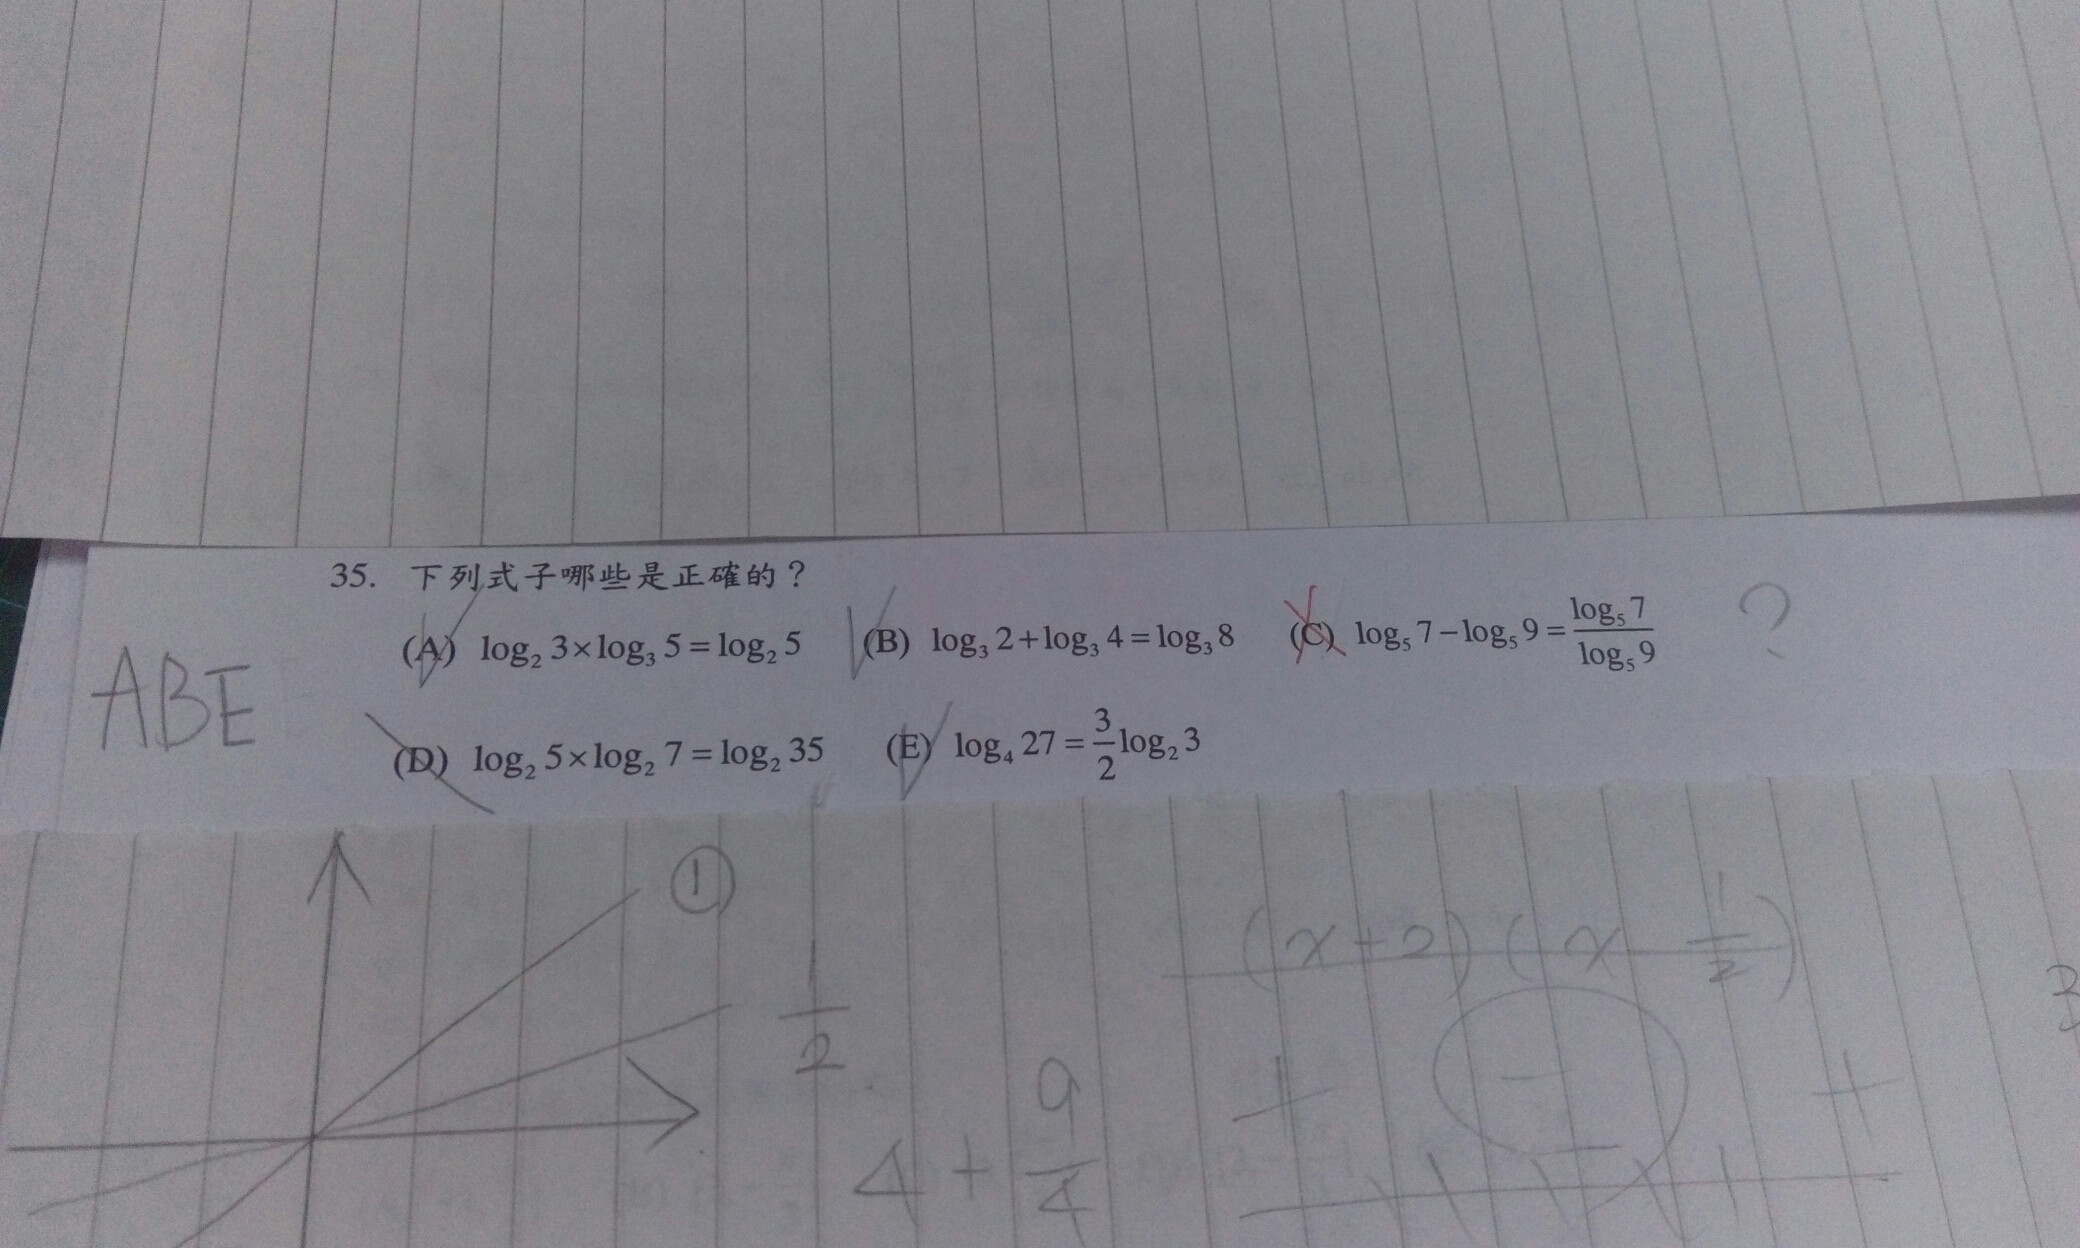 35. 下列式子哪些是正確的？
(A) log₂ 3×log₃ 5=log₂ 5 (B) log₃ 2+log₃ 4=log₃ 8 (C) log₅ 7−log₅ 9=log₅ 7/log₅ 9 ?
ABE
(D) log₂ 5×log₂ 7=log₂ 35 (E) log₄ 27=3/2 log₂ 3
①
(x+2)(x-1/2)
1/2
4+9/4
+ − +
3